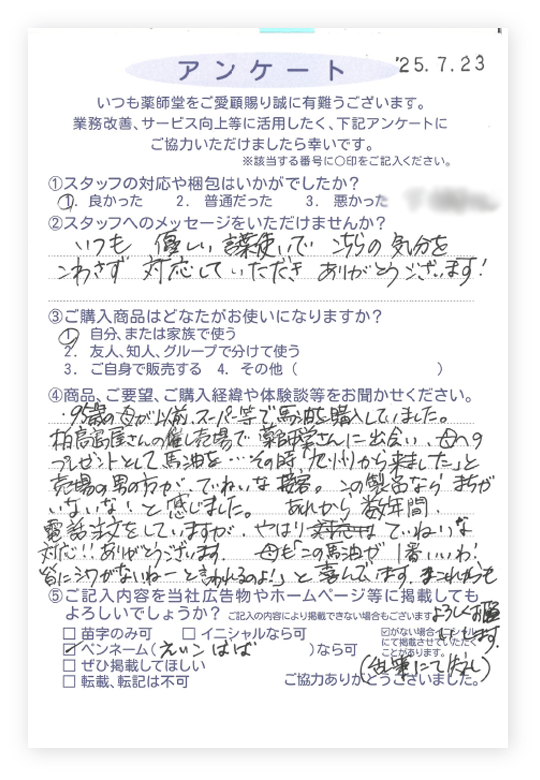 '25.7.23
アンケート
いつも薬師堂をご愛顧賜り誠に有難うございます。
業務改善、サービス向上等に活用したく、下記アンケートに
ご協力いただけましたら幸いです。
※該当する番号に〇印をご記入ください。
①スタッフの対応や梱包はいかがでしたか?
1. 良かった 2. 普通だった 3. 悪かった
②スタッフへのメッセージをいただけませんか?
いつも 優しい言葉使いで こちらの気分を
こわさず 対応していただき ありがとうございます!
③ご購入商品はどなたがお使いになりますか?
1. 自分、または家族で使う
2. 友人、知人、グループで分けて使う
3. ご自身で販売する 4. その他( )
④商品、ご要望、ご購入経緯や体験談等をお聞かせください。
・95歳の母が以前、スーパー等で馬油を購入していました。
柏高島屋さんの催し売場で薬師堂さんに出会い、母への
プレゼントとして馬油を…その時「九州から来ました」と
売場の男の方が、ていねいな接客。この製品なら まちが
いないな!と感じました。 あれから 数年間、
電話注文をしていますが、やはり ていねいな
対応!!ありがとうございます。 母も「この馬油が1番いいわ!
皆にシワがないねーと言われるのよ!」と喜んでます。またこれからも
よろしくお願いします。
⑤ご記入内容を当社広告物やホームページ等に掲載しても
よろしいでしょうか? ご記入の内容により掲載できない場合もございます
□ 苗字のみ可 □ イニシャルなら可
☑がない場合イニシャル
にて掲載させていただく
ことがあります。
☑ ペンネーム(えいこばば )なら可
□ ぜひ掲載してほしい
□ 転載、転記は不可
ご協力ありがとうございました。